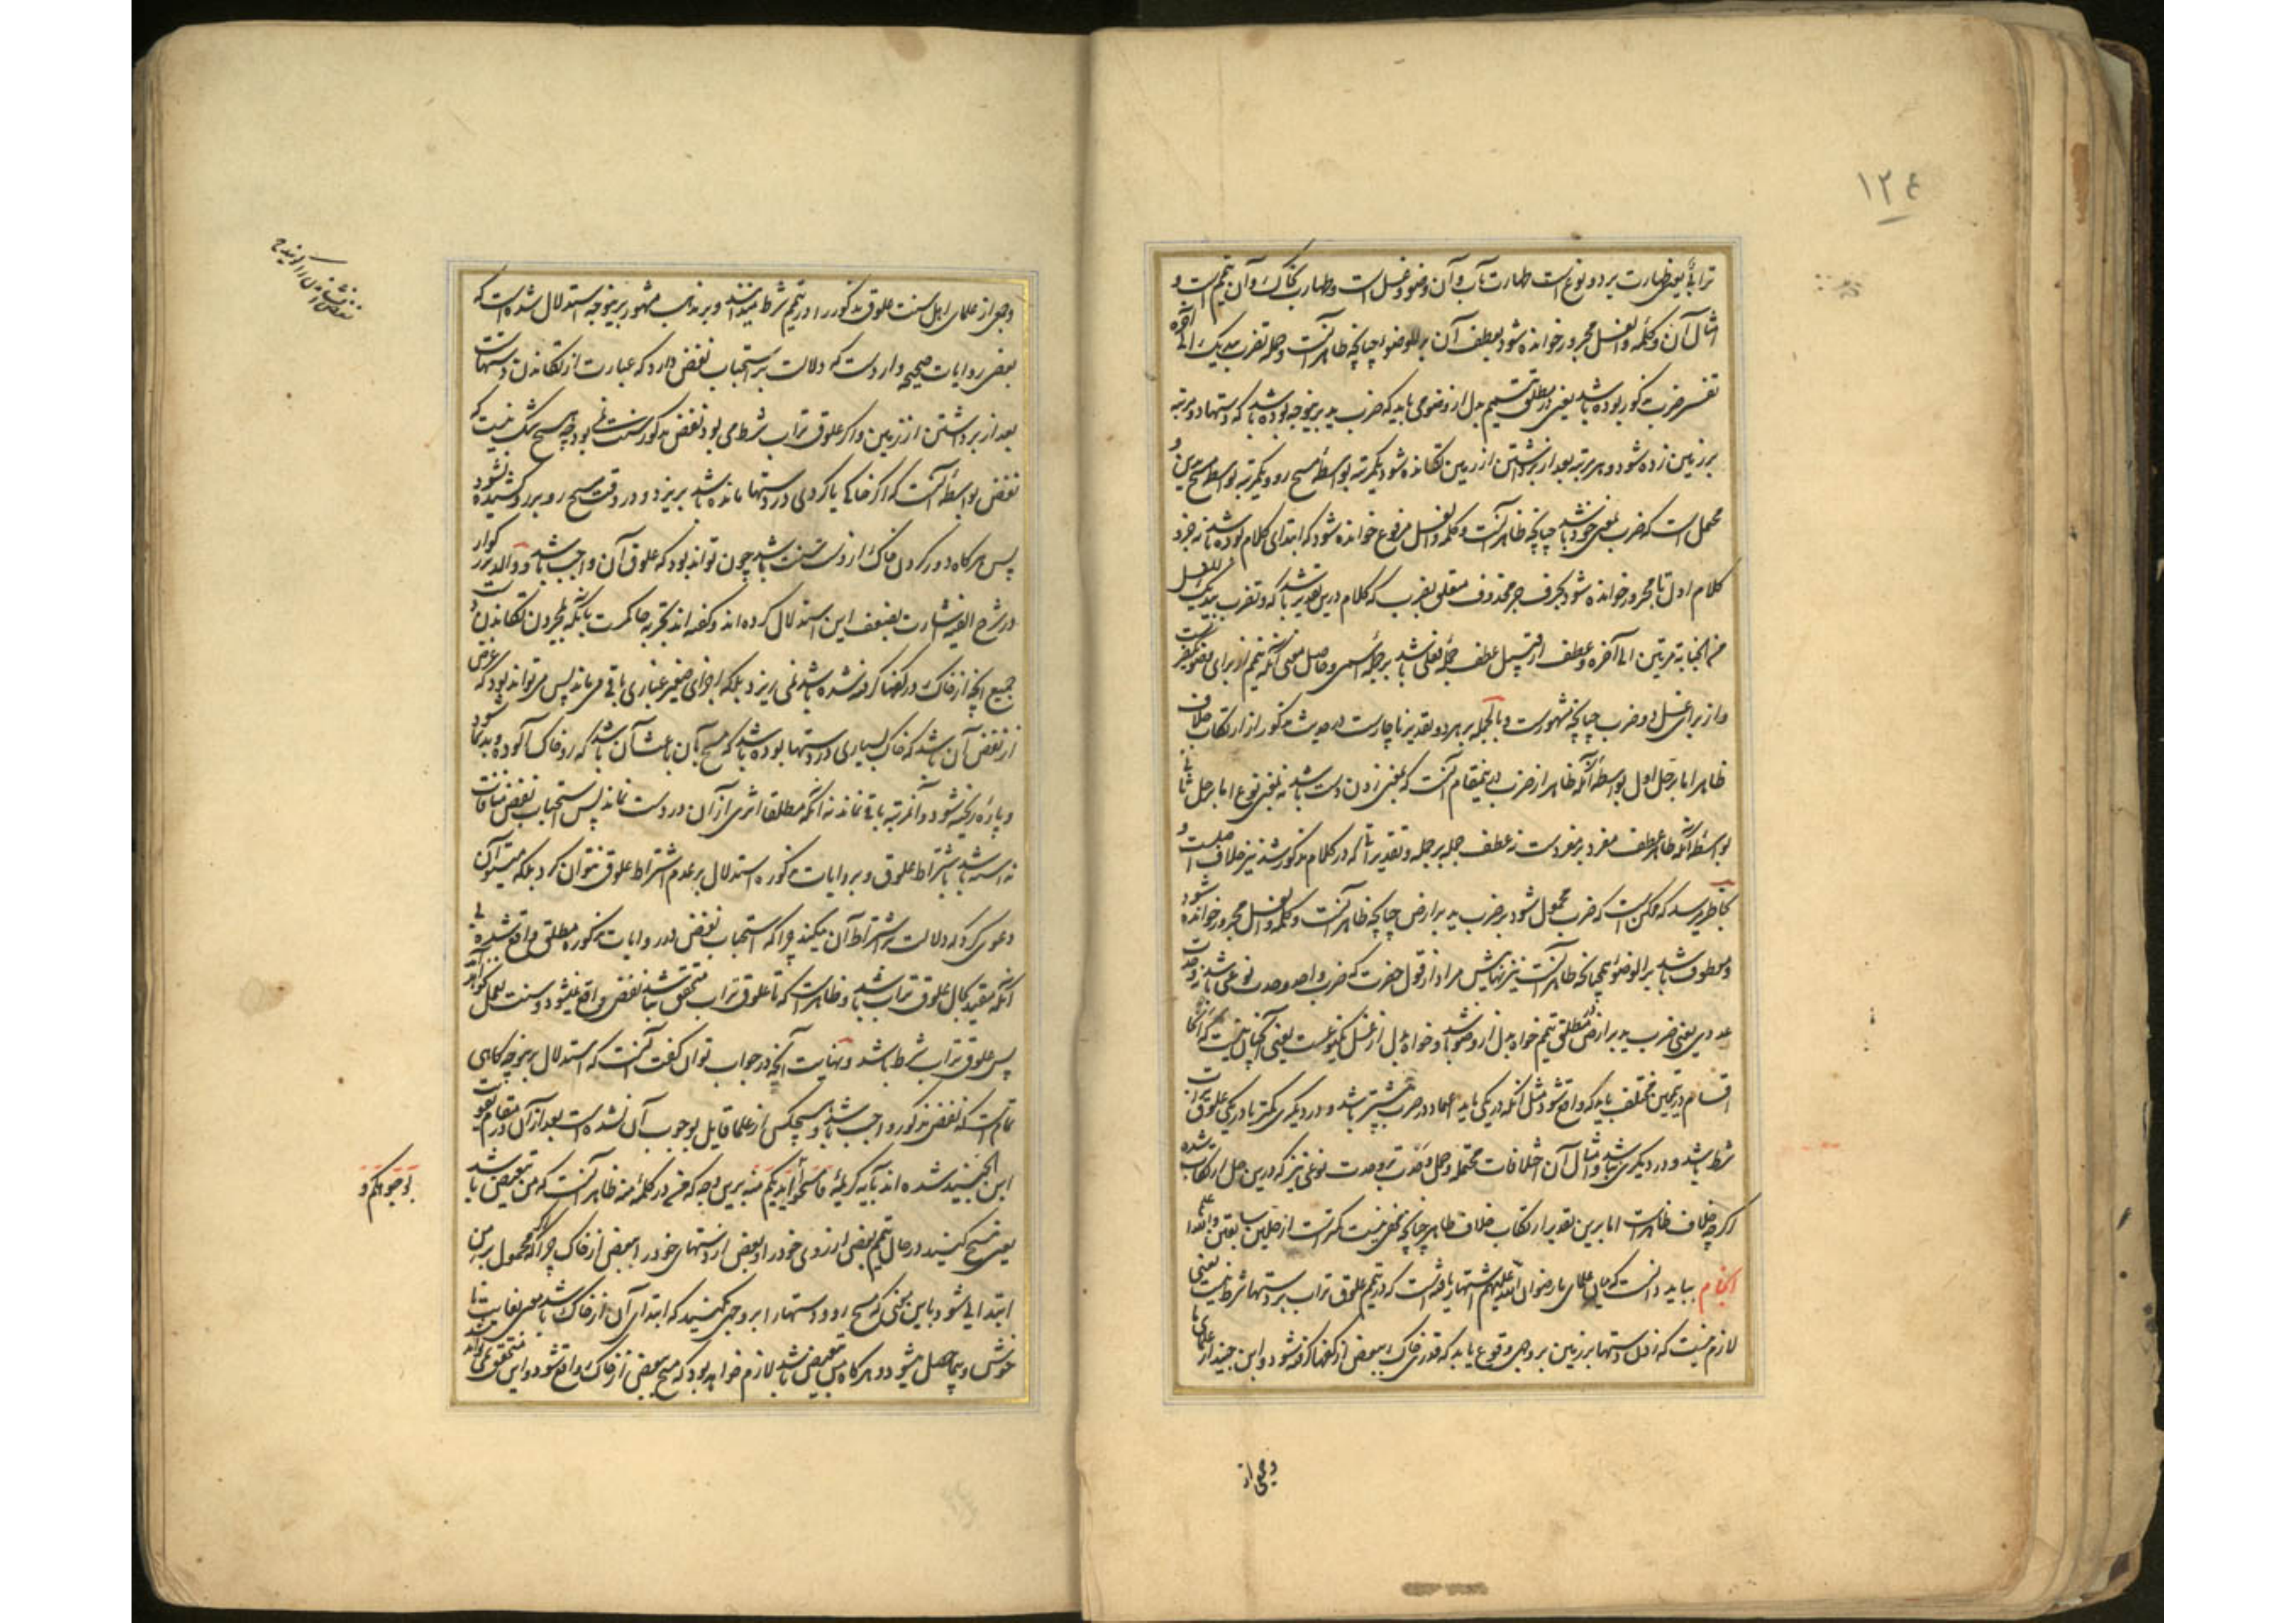 ۱۲۴
ترابی یعنی طهارت بر دو نوع است طهارت بآب و آن وضو و غسل است و طهارت بخاک و آن تیمم است و
امثال آن و کلمه والغسل مجرور خوانده شود بعطف آن بر للوضوء چنانچه ظاهر آنست و جمله تضرب بیدیک الی آخره
تفسیر ضرب مذکور بوده باشد یعنی در مطلق تیمم بدل از وضو می باید که ضرب ید برینوجه بوده باشد که دستها دو مرتبه
بر زمین زده شود و هر مرتبه بعد از برداشتن از زمین تکانده شود یکمرتبه بواسطهٔ مسح رو و یکمرتبه بواسطه مسح یدین و
محمل است که ضرب بمعنی خود باشد چنانچه ظاهر آنست و کلمه والغسل مرفوع خوانده شود که ابتدای کلام بوده باشد نه جزو
کلام اول تا مجرور خوانده شود بحرف جر محذوف متعلق بضرب که کلام درین تقدیر باشد که و تضرب بیدیک للغسل
من الجنابة مرتین الی آخره و عطف از قبیل عطف جملهٔ فعلی باشد بر جملهٔ اسمی و حاصل معنی آنکه تیمم از برای وضو یکضربست
و از برای غسل دو ضرب چنانچه مشهورست و بالجمله بر هر دو تقدیر ناچارست در حدیث مذکور از ارتکاب خلاف
ظاهر اما بر حمل اول بواسطهٔ آنکه ظاهر از ضرب درینمقام آنست که بمعنی زدن دست باشد نه بمعنی نوع اما بر حمل ثانی
بواسطهٔ آنکه ظاهر عطف مفرد بر مفردست نه عطف جمله بر جمله و تقدیر آنا که در کلام مذکور نشد نیز خلاف اصلست و
بخاطر میرسد که ممکن است که ضرب محمول شود بر ضرب ید بر ارض چنانچه ظاهر آنست و کلمه والغسل مجرور خوانده شود
و معطوف باشد بر الوضوء همچنانکه ظاهر آنست نیز نهایتش مراد از قول حضرت که ضرب واحد وحدت نوعی باشد نه وحدت
عددی یعنی ضرب ید بر ارض در مطلق تیمم خواه بدل از وضو باشد و خواه بدل از غسل یکنوعست یعنی آنچنان نیست که آن
اقسام در تیممین مختلف باید که واقع شود مثل آنکه در یکی باید اعتماد در ضرب بیشتر باشد و در دیگری کمتر یا در یکی علوق تراب
شرط باشد و در دیگری نباشد و امثال آن اختلافات محتمله و حمل وحدت بر وحدت نوعی نیز که درین حمل ارتکاب شده
اگر چه خلاف ظاهرست اما برین تقدیر ارتکاب خلاف ظاهر چنانچه مخفی نیست کمترست از حملین سابقین والله اعلم
انجام بباید دانست که میان علمای ما رضوان الله علیهم اشتهار یافته است که در تیمم علوق تراب بر دستها شرط نیست یعنی
لازم نیست که زدن دستها بر زمین بر وجهی وقوع یابد که قدری خاک ببعضی از کفها گرفته شود و ابن جنید از علمای ما
و جمعی از
و جمعی از علمای اهل سنت علوق مذکور را در تیمم شرط میدانند و بر مذهب مشهور برینوجه استدلال شده است که
بعضی روایات صحیحه واردست که دلالت بر استحباب نفض دارد که عبارت از تکاندن دستهاست
بعد از برداشتن از زمین و اگر علوق تراب شرط می بود نفض مذکور سنت نمی بود چه هیچ شک نیست که
نفض بواسطهٔ آنست که اگر خاکی یا گردی در دستها مانده باشد بریزد و در وقت مسح رو بر رو کشیده نشود
پس هرگاه دور کردن خاک از دست سنت باشد چون تواند بود که علوق آن واجب باشد و والد بزرگوار
در شرح الفیه اشارت بضعف این استدلال کرده اند و گفته اند تجربه حاکمست بآنکه بمجرد تکاندن دست
جمیع آنچه از خاک در کفها گرفته شده باشد نمی ریزد بلکه اجزای صغیر غباری باقی میماند پس می تواند بود که غرض
از نفض آن باشد که خاک بسیاری در دستها بوده باشد که مسح بآن باعث آن باشد که رو خاک آلوده و بدنما شود
و پاره ریخته شود و آنمرتبه باقی نماند نه آنکه مطلقا اثری از آن در دست نماند پس استحباب نفض منافات
نداشته باشد باشتراط علوق و بروایات مذکوره استدلال بر عدم اشتراط علوق نتوان کرد بلکه میتوان
دعوی کرد که دلالت بر اشتراط آن میکند چرا که استحباب نفض در روایات مذکوره مطلق واقع شده بی
آنکه مقید بکمال علوق تراب باشد و ظاهرست که تا علوق تراب متحقق نباشد نفض واقع نمیشود و سنت بعمل نمی آید
پس علوق تراب شرط باشد و نهایت آنچه در جواب توان گفت آنست که استدلال برینوجه گاهی
تمام است که نفض مذکور واجب باشد و هیچکس از علما قایل بوجوب آن نشده است بعد از آن در مقام تقویت
ابن الجنید شده اند بآیه کریمه فامسحوا بایدیکم منه برین وجه که من در کلمه منه ظاهر آنست که من تبعیض باشد
بوجوهکم و
یعنی مسح کنید در حال تیمم بعضی از روی خود را و بعضی از دستهای خود را ببعضی از خاک چرا که محمول بر من
ابتدایی شود باین معنی که مسح رو و دستها را بر وجهی کنید که ابتدای آن از خاک باشد معنی بغایت نا
خوش و بیحاصل میشود و هرگاه من تبعیض باشد لازم خواهد بود که مسح ببعضی از خاک واقع شود و این متحقق نمی تواند شد